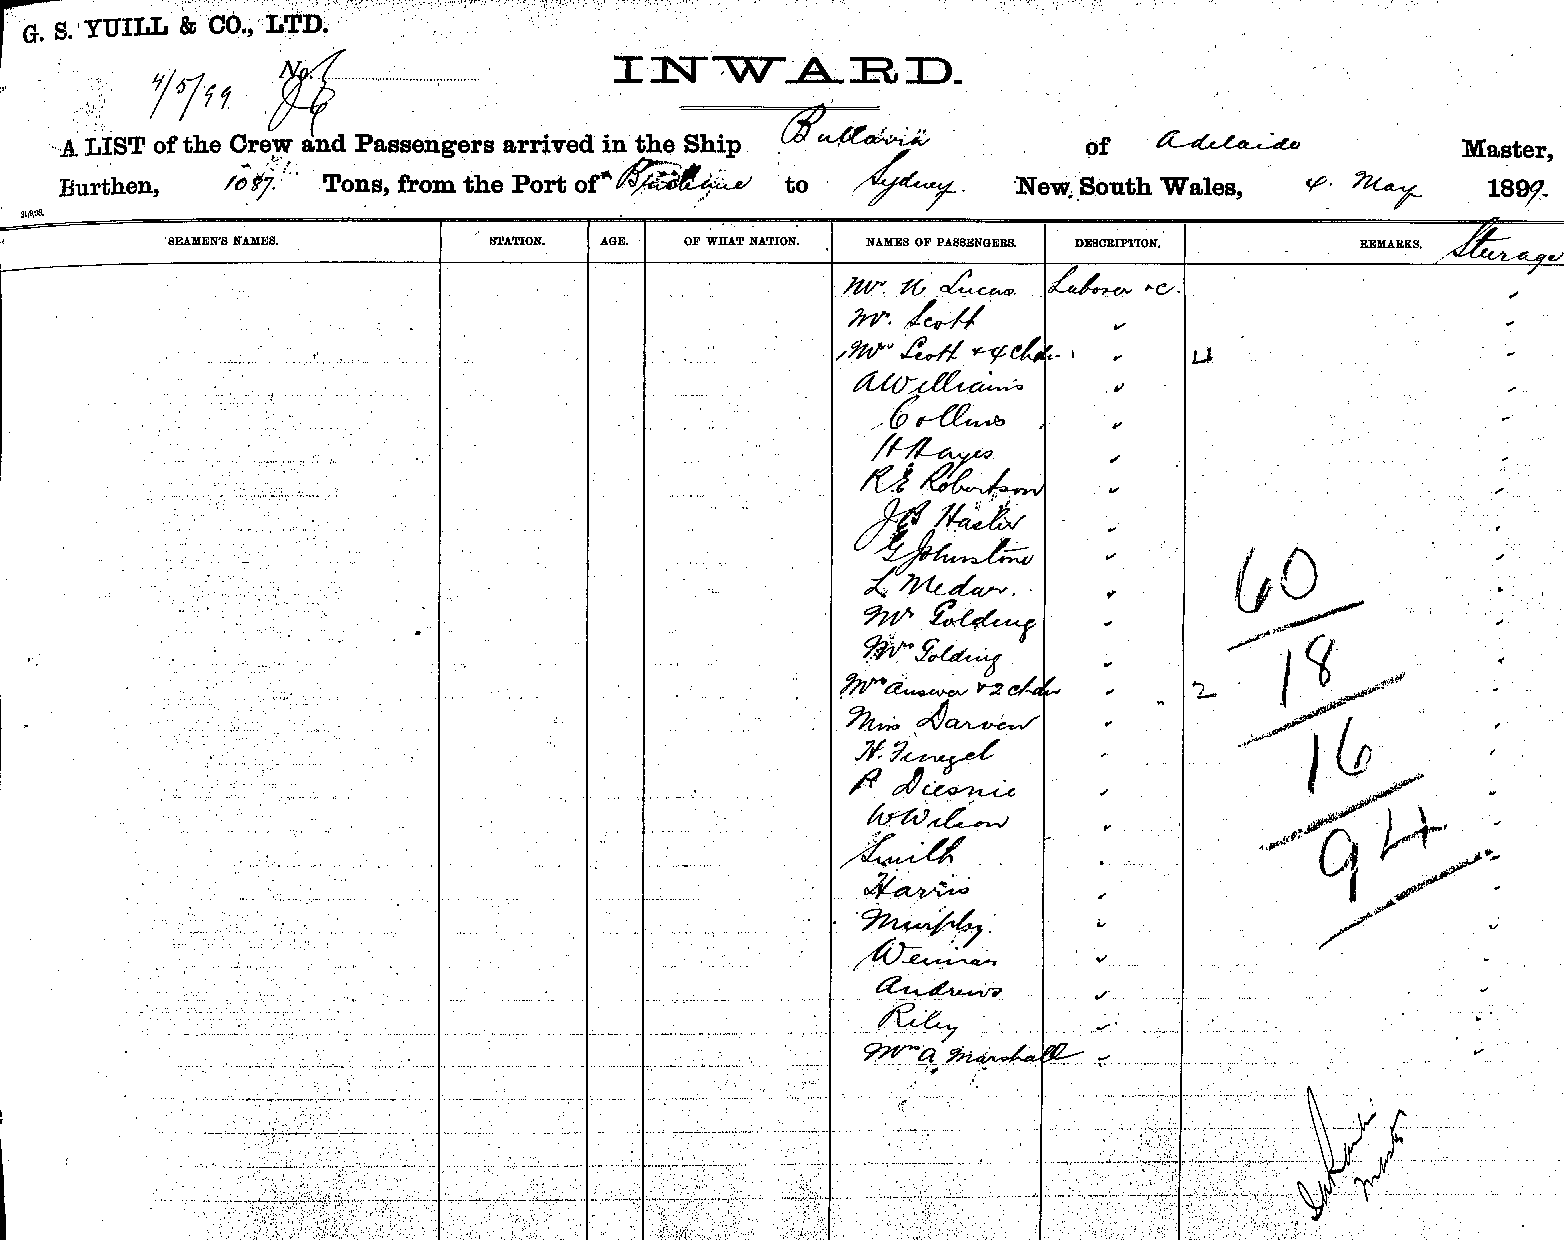 G. S. YUILL & CO., LTD.
4/5/99 No.
INWARD.
A LIST of the Crew and Passengers arrived in the Ship Bullarra of Adelaide Master,
Burthen, 1087. Tons, from the Port of Brisbane to Sydney. New South Wales, 4. May 1899.
21/9/98.
SEAMEN'S NAMES. STATION. AGE. OF WHAT NATION. NAMES OF PASSENGERS. DESCRIPTION. REMARKS. Steerage
Mr. N Lucas Laborer &c. "
Mr. Scott " "
Mrs Scott & 4 Chdn " 4 "
A Williams " "
Collins " "
H Hayes " "
RE Robertson " "
JB Hasler " "
G Johnstone " "
L Medar. " "
Mr Golding " "
Mrs Golding " "
Mrs & 2 Chdn " 2 "
Miss Darven " "
H. " "
A " "
W Wilson " "
Smith " "
Harris " "
Murphy. " "
" "
Andrews " "
Riley " "
Mrs A Marshall " "
60
18
16
94
Master